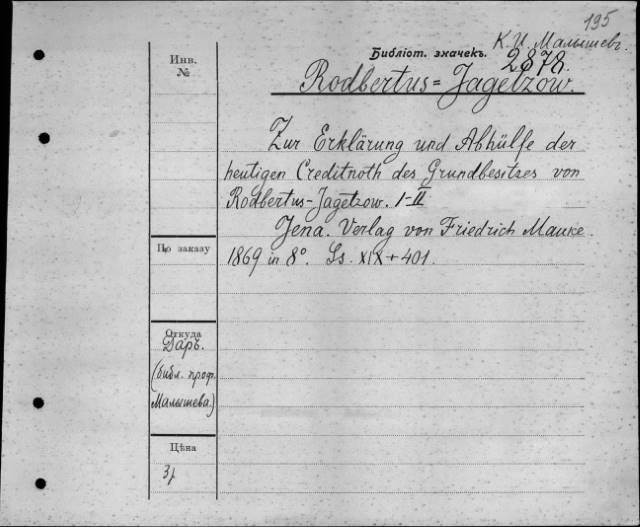 195
К. И. Малышевъ.
Инв.
№
Библіот. значекъ.
2878
Rodbertus=Jagetzow.
Zur Erklärung und Abhülfe der
heutigen Creditnoth des Grundbesitzes von
Rodbertus-Jagetzow. I-II
Jena. Verlag von Friedrich Mauke
1869 in 8° Ss. XIX+401.
По заказу
Откуда
Даръ.
(библ. проф.
Малышева)
Цѣна
3р